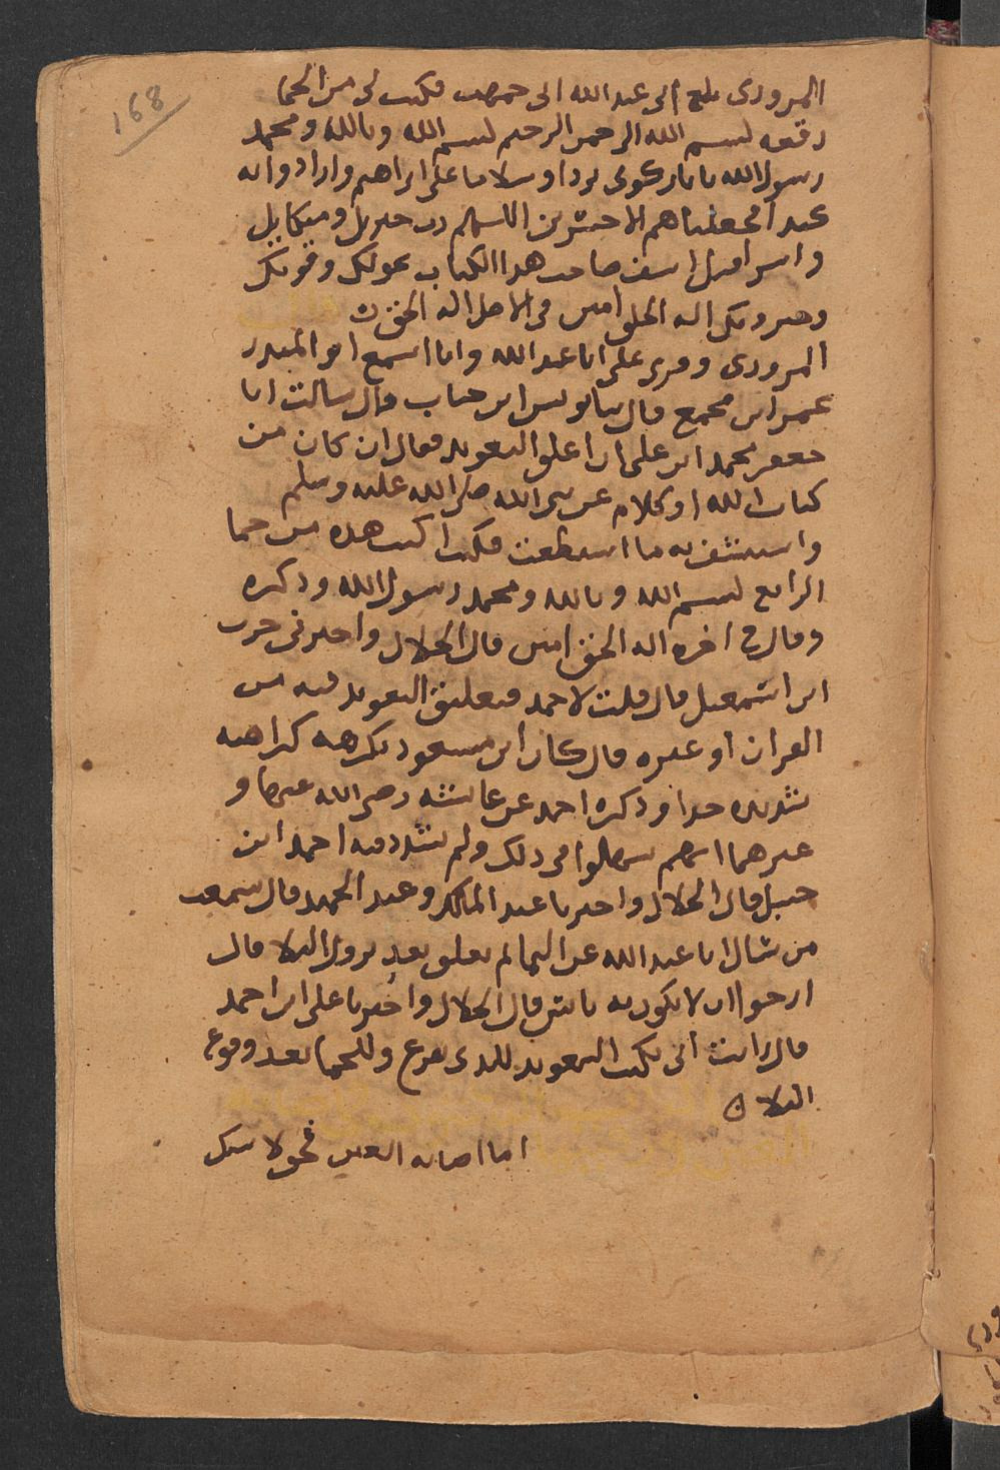 168
المروذى بلغ أبى عبد الله انى حممت فكتب لى من الحما
رقعه بسم الله الرحمن الرحيم بسم الله وبالله ومحمد
رسول الله يا نار كونى بردا وسلاما على ابراهيم وارادوا به
كيدا فجعلناهم الاخسرين اللهم رب جبريل وميكايل
واسرافيل اشف صاحب هدا الكتاب بحولك وقوتك
وجبروتك اله الخلق امين فى الاصل اله الحق ن
المروذى وقرى على ابا عبد الله وانا اسمع ابو المنذر
عمر ابن مجمع قال بنا يونس ابن حباب قال سالت ابا
جعفر محمد ابن على ان اعلق التعويد فقال ان كان من
كتاب الله او كلام عن نبى الله صلى الله عليه وسلم
واستشف به ما استطعت فكتب اكتب هده من حما
الرابع بسم الله وبالله ومحمد رسول الله ودكره
وقال فى اخره اله الحق امين قال الخلال واخبرنى حرب
ابن اسمعيل قال قلت لاحمد فتعليق التعويد فيه من
القران او غيره قال كان ابن مسعود يكرهه كراهيه
شديده جدا ودكره احمد عن عائشه رضى الله عنها و
غيرهما انهم سهلوا فى دلك ولم يشدد فيه احمد ابن
حنبل قال الخلال واخبرنا عبد الملك وعبد الحميد قال سمعت
من سال ابا عبد الله عن التمائم تعلق بعد نزول البلا قال
ارجوا ان لا يكون به باس قال الخلال واخبرنا على ابن احمد
قال رايت أبى يكتب التعويد للدى يفزع وللحما بعد وقوع
البلا ن
اما اصابه العين فحق لا سك